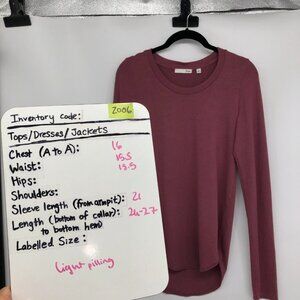 Inventory Code: 2006
Tops/Dresses/Jackets
Chest (A to A): 16
Waist: 15.5
Hips: 15.5
Shoulders:
Sleeve length (from armpit): 21
Length (bottom of collar): 24-27
to bottom hem)
Labelled Size:
Light pilling